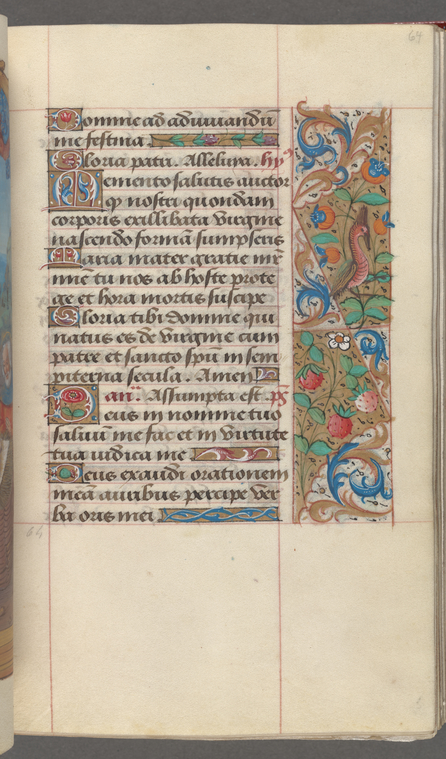 64
Domine ad adiuuandū
me festina.
Gloria patri. Alleluya. hy̅
Memento salutis auctor
q̨ nostri quondam
corporis ex illibata virgine
nascendo formā sumpseris
Maria mater gratie mr̄
mīe tu nos ab hoste prote
ge et hora mortis suscipe
Gloria tibi domine qui
natus es de virgine cum
patre et sancto spū in sem
piterna secula. Amen
an̄. Assumpta est. ps̄
Deus in nomine tuo
saluū me fac et in virtute
tua iudica me
Deus exaudi orationem
meā auribus percipe ver
ba oris mei
64